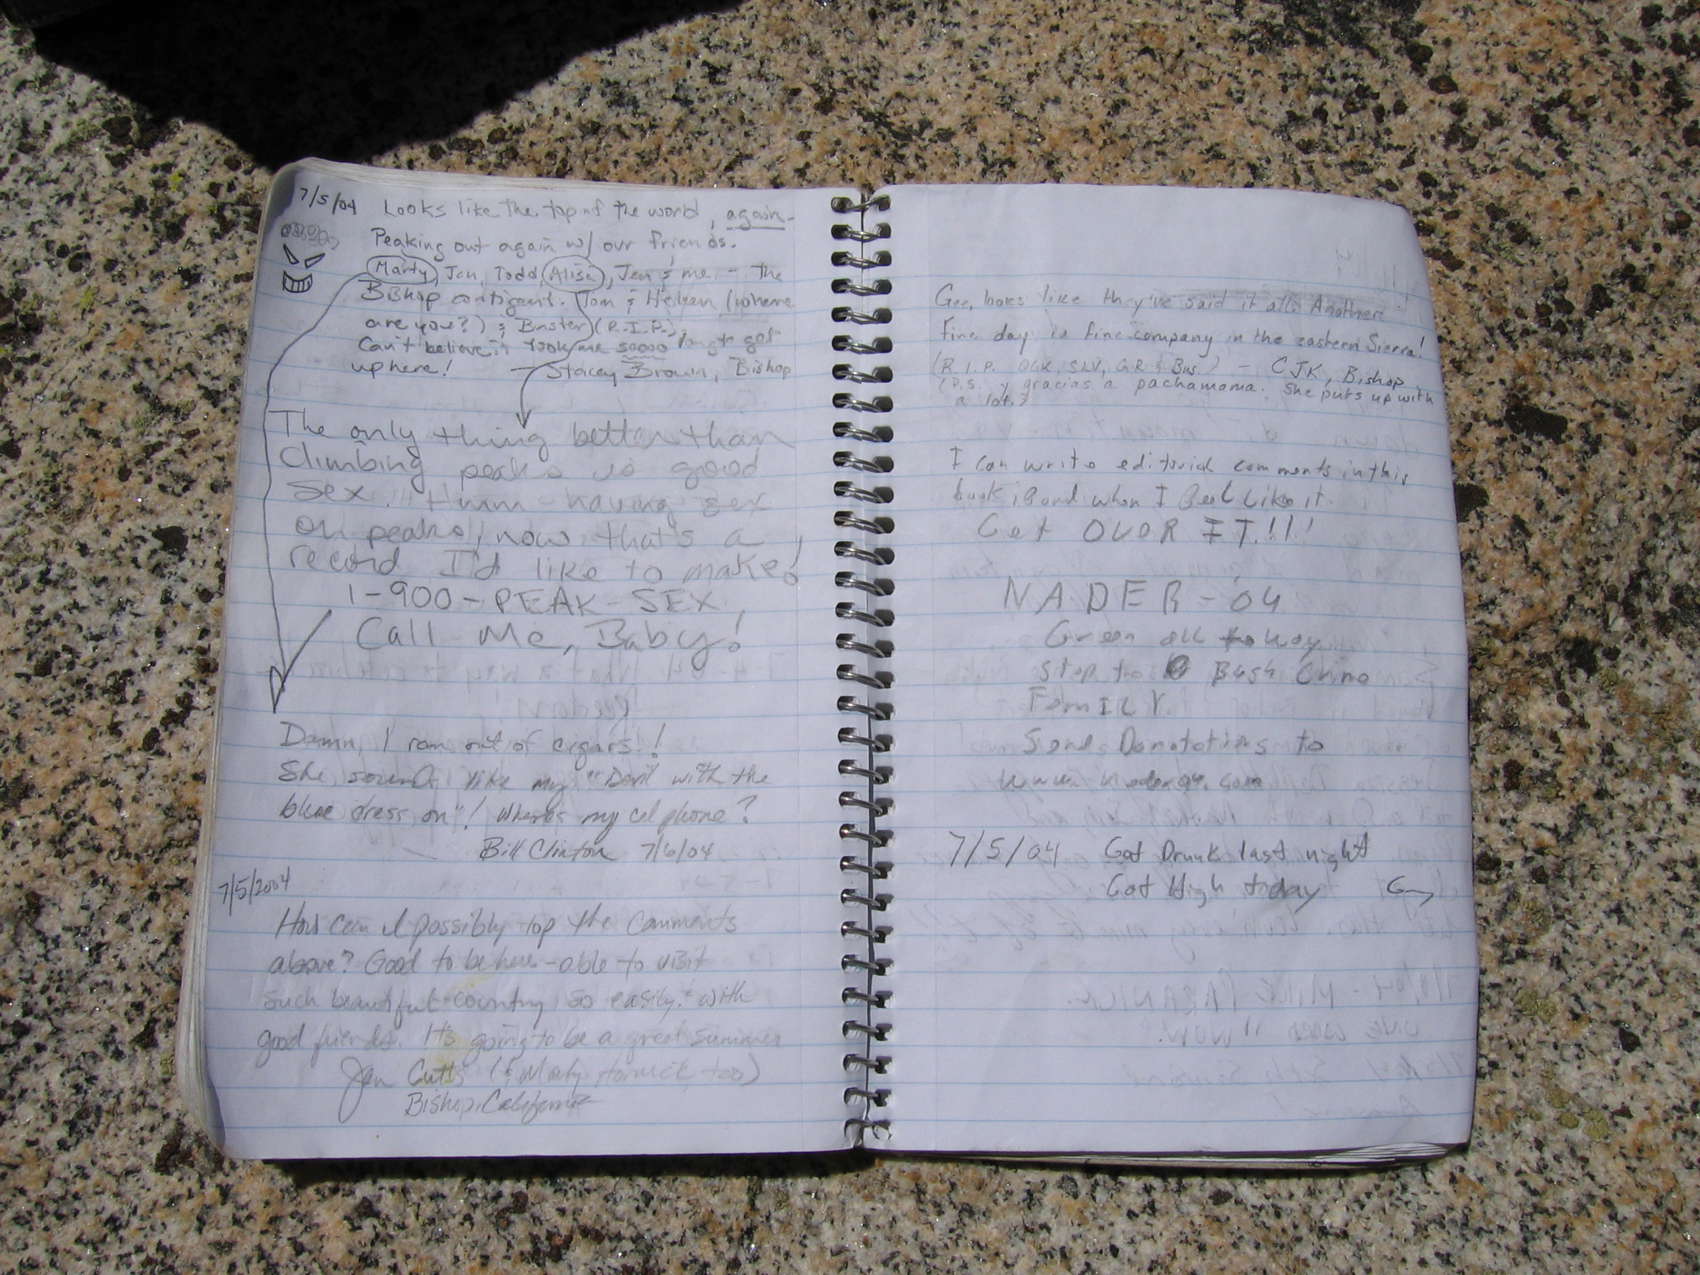 7/5/04 Looks like the top of the world, again-
Peaking out again w/ our friends.
Marty, Jen, Todd, Alise, Jen & me - the
Bishop contigent. Tom & Heleen (where
are you?) & Buster (R.I.P.)
Can't believe it took me soooo long to get
up here! - Stacey Brown, Bishop
The only thing better than
climbing peaks is good
sex!! Hmm - having sex
on peaks, now that's a
record I'd like to make!
1-900-PEAK-SEX
Call Me, Baby!
Damn, I ran out of cigars!!
She sounds like my "Devil with the
blue dress on"! Where's my cel phone?
Bill Clinton 7/6/04
7/5/2004
How can I possibly top the comments
above? Good to be here - able to visit
such beautiful country so easily. with
good friends. It's going to be a great summer
Jen Cutts (& Marty too)
Bishop, California
Gee, looks like they've said it all. Another
fine day in fine company in the eastern Sierra!
(R.I.P. OLK, SLV, GR & Bus.) - CJK, Bishop
(P.S. y gracias a pachamama. She puts up with
a lot.)
I can write editorial comments in this
book if and when I feel like it.
Get OVER IT!!!
NADER-04
Green all the way
Stop the Bush Crime
FamILY
Send Donatations to
www.nader04.com
7/5/04 Got Drunk last night
Got High today